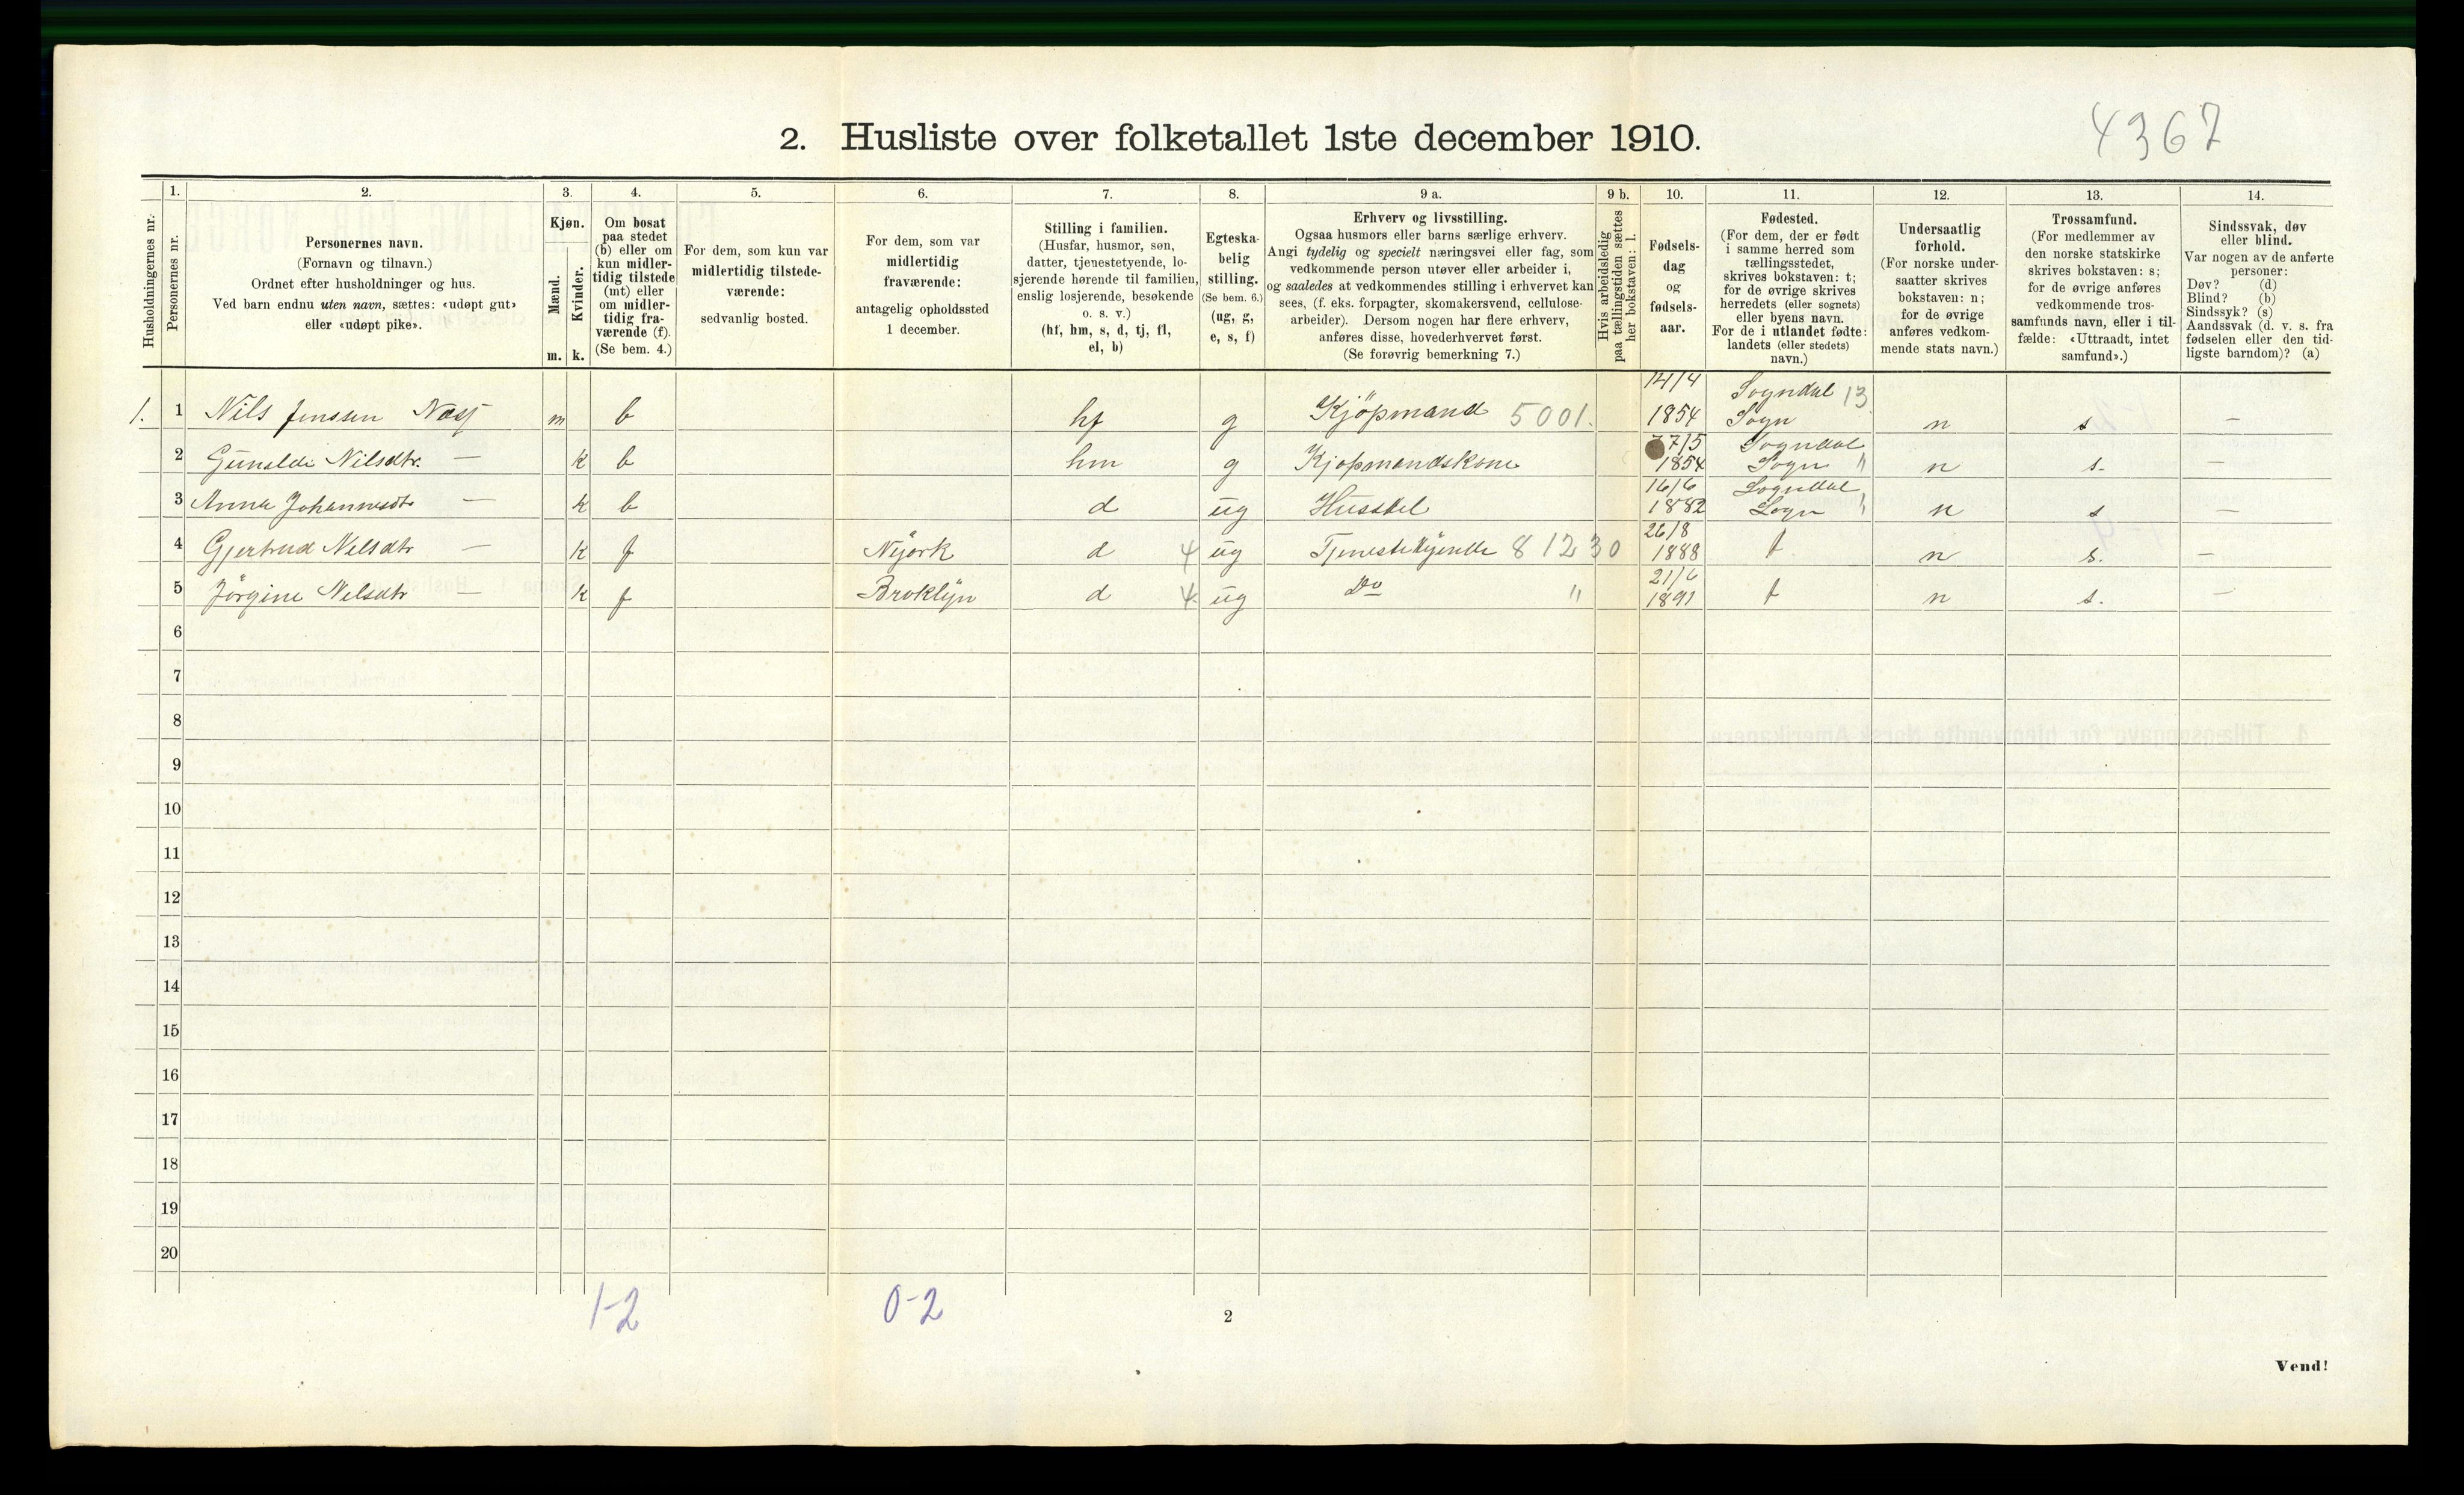 4367
2. Husliste over folketallet 1ste december 1910.
Husholdningernes nr.
1.
Personernes nr.
2.
Personernes navn.
(Fornavn og tilnavn.)
Ordnet efter husholdninger og hus.
Ved barn endnu uten navn, sættes: «udøpt gut»
eller «udøpt pike».
3.
Kjøn.
Mænd.
Kvinder.
m. k.
4.
Om bosat
paa stedet
(b) eller om
kun midler-
tidig tilstede
(mt) eller
om midler-
tidig fra-
værende (f).
(Se bem. 4.)
5.
For dem, som kun var
midlertidig tilstede-
værende:
sedvanlig bosted.
6.
For dem, som var
midlertidig
fraværende:
antagelig opholdssted
1 december.
7.
Stilling i familien.
(Husfar, husmor, søn,
datter, tjenestetyende, lo-
sjerende hørende til familien,
enslig losjerende, besøkende
o. s. v.)
(hf, hm, s, d, tj, fl,
el, b)
8.
Egteska-
belig
stilling.
(Se bem. 6.)
(ug, g,
e, s, f)
9 a.
Erhverv og livsstilling.
Ogsaa husmors eller barns særlige erhverv.
Angi tydelig og specielt næringsvei eller fag, som
vedkommende person utøver eller arbeider i,
og saaledes at vedkommendes stilling i erhvervet kan
sees, (f. eks. forpagter, skomakersvend, cellulose-
arbeider). Dersom nogen har flere erhverv,
anføres disse, hovederhvervet først.
(Se forøvrig bemerkning 7.)
9 b.
Hvis arbeidsledig
paa tællingstiden sættes
her bokstaven: l.
10.
Fødsels-
dag
og
fødsels-
aar.
11.
Fødested.
(For dem, der er født
i samme herred som
tællingsstedet,
skrives bokstaven: t;
for de øvrige skrives
herredets (eller sognets)
eller byens navn.
For de i utlandet fødte:
landets (eller stedets)
navn.)
12.
Undersaatlig
forhold.
(For norske under-
saatter skrives
bokstaven: n;
for de øvrige
anføres vedkom-
mende stats navn.)
13.
Trossamfund.
(For medlemmer av
den norske statskirke
skrives bokstaven: s;
for de øvrige anføres
vedkommende tros-
samfunds navn, eller i til-
fælde: «Uttraadt, intet
samfund».)
14.
Sindssvak, døv
eller blind.
Var nogen av de anførte
personer:
Døv? (d)
Blind? (b)
Sindssyk? (s)
Aandssvak (d. v. s. fra
fødselen eller den tid-
ligste barndom)? (a)
1. 1 Nils Jenssen m b hf g Kjöpmand 5001. 14/4 1854 Sogndal 13 Sogn n s —
2 Nilsdtr. — k b hm g Kjopmandskone 7/5 1854 Sogndal Sogn " n s. —
3 Anna Johannesdtr — k b d ug Husstel 16/6 1882 Sogndal Sogn " n s —
4 Gjertrud Nilsdtr — k f Nyork d 4 ug Tjenestetyende 81230 26/8 1888 t n s. —
5 Jörgine Nilsdtr — k f Broklyn d 4 ug Do " 21/6 1891 t n s. —
6
7
8
9
10
11
12
13
14
15
16
17
18
19
20
1-2 0-2
2
Vend!